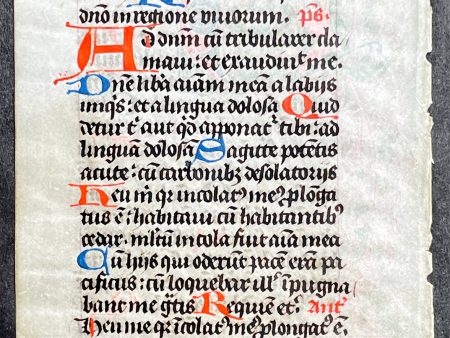 dnō in regione vivorum. ps̄
Ad dnm̄ cū tribularer cla
mavi: et exaudivit me.
Dn̄e lib̄a aīam meā a labijs
iniq̄s: et a lingua dolosā Quid
detur t̄ aut qd̄ apponat᷑ tibi: ad
linguā dolosā Sagitte potētis
acute: cū carbonibꝫ desolatorijs
Heu m̄ qꝛ incolat᷑ me᷑ plōga
tus ē: habitavi cū habitantib᷑
cedar. mltū incola fuit aīa mea
Cū hijs qui oderūt pacē erā pa
cificus: cū loquebar ill᷑ īpugna
bant me gͣtis Requiē et᷑. Ant᷑
Heu me qꝛ īcolat᷑ me᷑ plongat᷑ ē.